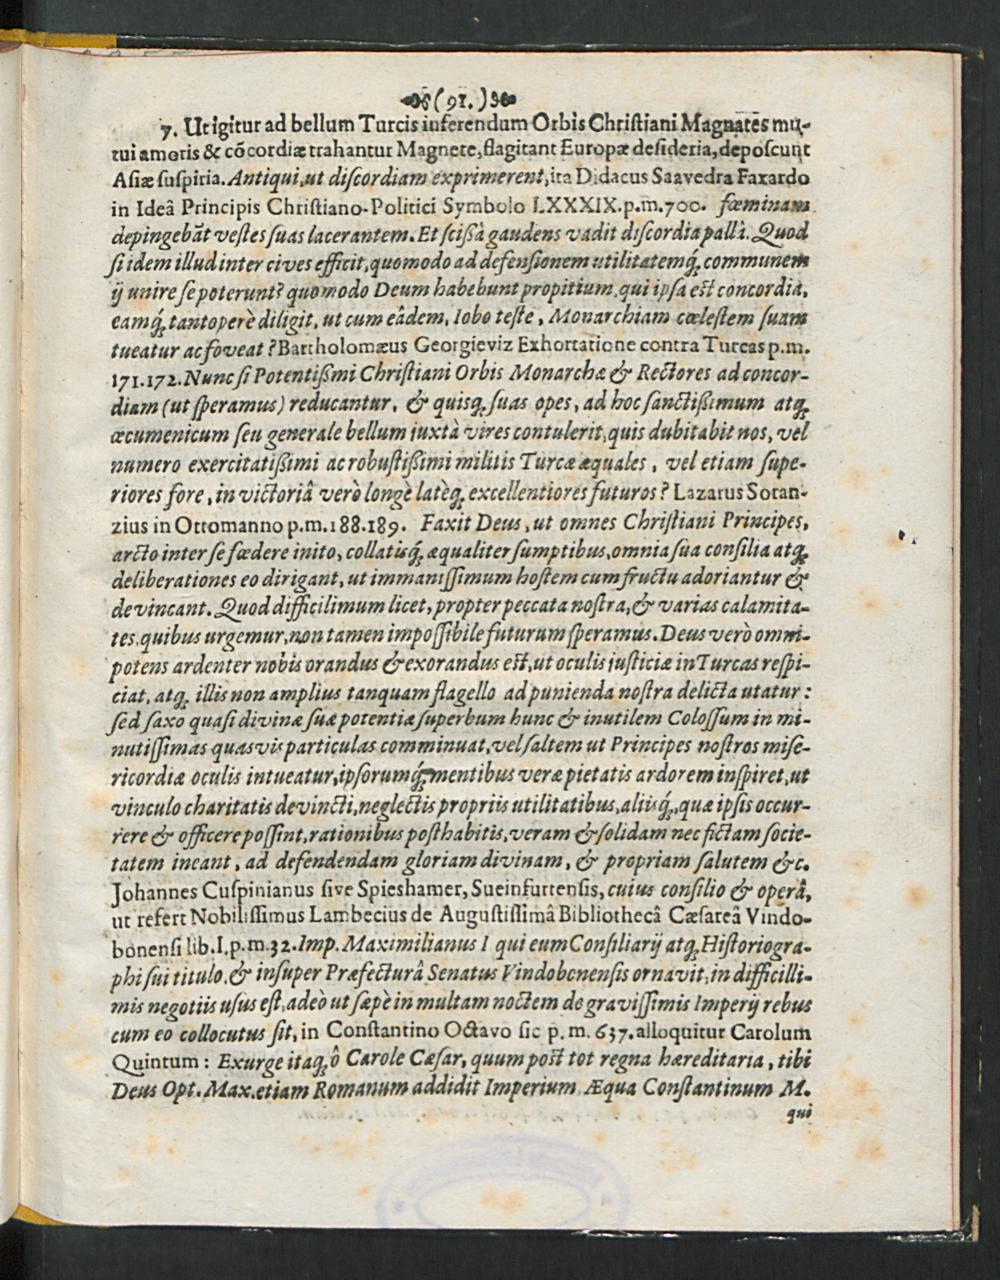 (91.)
7. Ut igitur ad bellum Turcis inferendum Orbis Christiani Magnates mu-
tui amoris & cõcordiæ trahantur Magnete, flagitant Europæ desideria, deposcunt
Asiæ suspiria. Antiqui, ut discordiam exprimerent, ita Didacus Saavedra Faxardo
in Ideâ Principis Christiano-Politici Symbolo LXXXIX. p. m. 700. fœminam
depingebãt vestes suas lacerantem. Et scißâ gaudens vadit discordia pallâ. Quod
si idem illud inter cives efficit, quomodo ad defensionem utilitatemq́; communem
ij unire se poterunt? quomodo Deum habebunt propitium, qui ipsa est concordia,
eamq́; tantoperè diligit, ut cum eâdem, Iobo teste, Monarchiam cœlestem suam
tueatur ac foveat? Bartholomæus Georgieviz Exhortatione contra Turcas p. m.
171. 172. Nunc si Potentißmi Christiani Orbis Monarchæ & Rectores ad concor-
diam (ut speramus) reducantur, & quisq; suas opes, ad hoc sanctißimum atq;
œcumenicum seu generale bellum juxtà vires contulerit, quis dubitabit nos, vel
numero exercitatißimi ac robustißimi militis Turcæ æquales, vel etiam supe-
riores fore, in victoriâ verò longè latèq; excellentiores futuros? Lazarus Soran-
zius in Ottomanno p. m. 188. 189. Faxit Deus, ut omnes Christiani Principes,
arcto inter se fœdere inito, collatisq́; æqualiter sumptibus, omnia sua consilia atq;
deliberationes eo dirigant, ut immanissimum hostem cum fructu adoriantur &
devincant. Quod difficilimum licet, propter peccata nostra, & varias calamita-
tes, quibus urgemur, non tamen impossibile futurum speramus. Deus verò omni-
potens ardenter nobis orandus & exorandus est, ut oculis justiciæ in Turcas respi-
ciat, atq; illis non amplius tanquam flagello ad punienda nostra delicta utatur:
sed saxo quasi divinæ suæ potentiæ superbum hunc & inutilem Colossum in mi-
nutissimas quasvis particulas comminuat, vel saltem ut Principes nostros mise-
ricordiæ oculis intueatur, ipsorumq́; mentibus veræ pietatis ardorem inspiret, ut
vinculo charitatis devincti, neglectis propriis utilitatibus, aliisq́; quæ ipsis occur-
rere & officere possint, rationibus posthabitis, veram & solidam nec fictam socie-
tatem ineant, ad defendendam gloriam divinam, & propriam salutem &c.
Johannes Cuspinianus sive Spieshamer, Sueinfurtensis, cuius consilio & operâ,
ut refert Nobilissimus Lambecius de Augustissimâ Bibliothecâ Cæsareâ Vindo-
bonensi lib. I. p. m. 32. Imp. Maximilianus I qui eum Consiliarij atq; Historiogra-
phi sui titulo, & insuper Præfecturâ Senatus Vindobonensis ornavit, in difficilli-
mis negotiis usus est, adeò ut sæpè in multam noctem de gravissimis Imperij rebus
cum eo collocutus sit, in Constantino Octavo sic p. m. 637. alloquitur Carolum
Quintum: Exurge itaq; ô Carole Cæsar, quum post tot regna hæreditaria, tibi
Deus Opt. Max. etiam Romanum addidit Imperium. Æqua Constantinum M.
qui